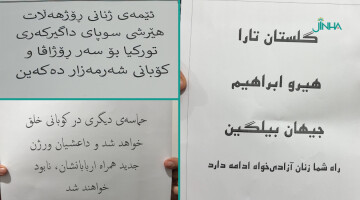 ئێمەی ژنانی ڕۆژهەلات
هێرشی سوپای داگیرکەری
تورکیا بۆ سەر ڕۆژاڤا و
کۆبانی شەرمەزار دەکەین
حماسه‌ی دیگری در کوبانی خلق
خواهد شد و داعشیان ورژن
جدید همراه اربابانشان، نابود
خواهند شد
JINHA
گلستان تارا
هیرو ابراهیم
جیهان بیلگین
راه شما زنان آزادی‌خواه ادامه دارد